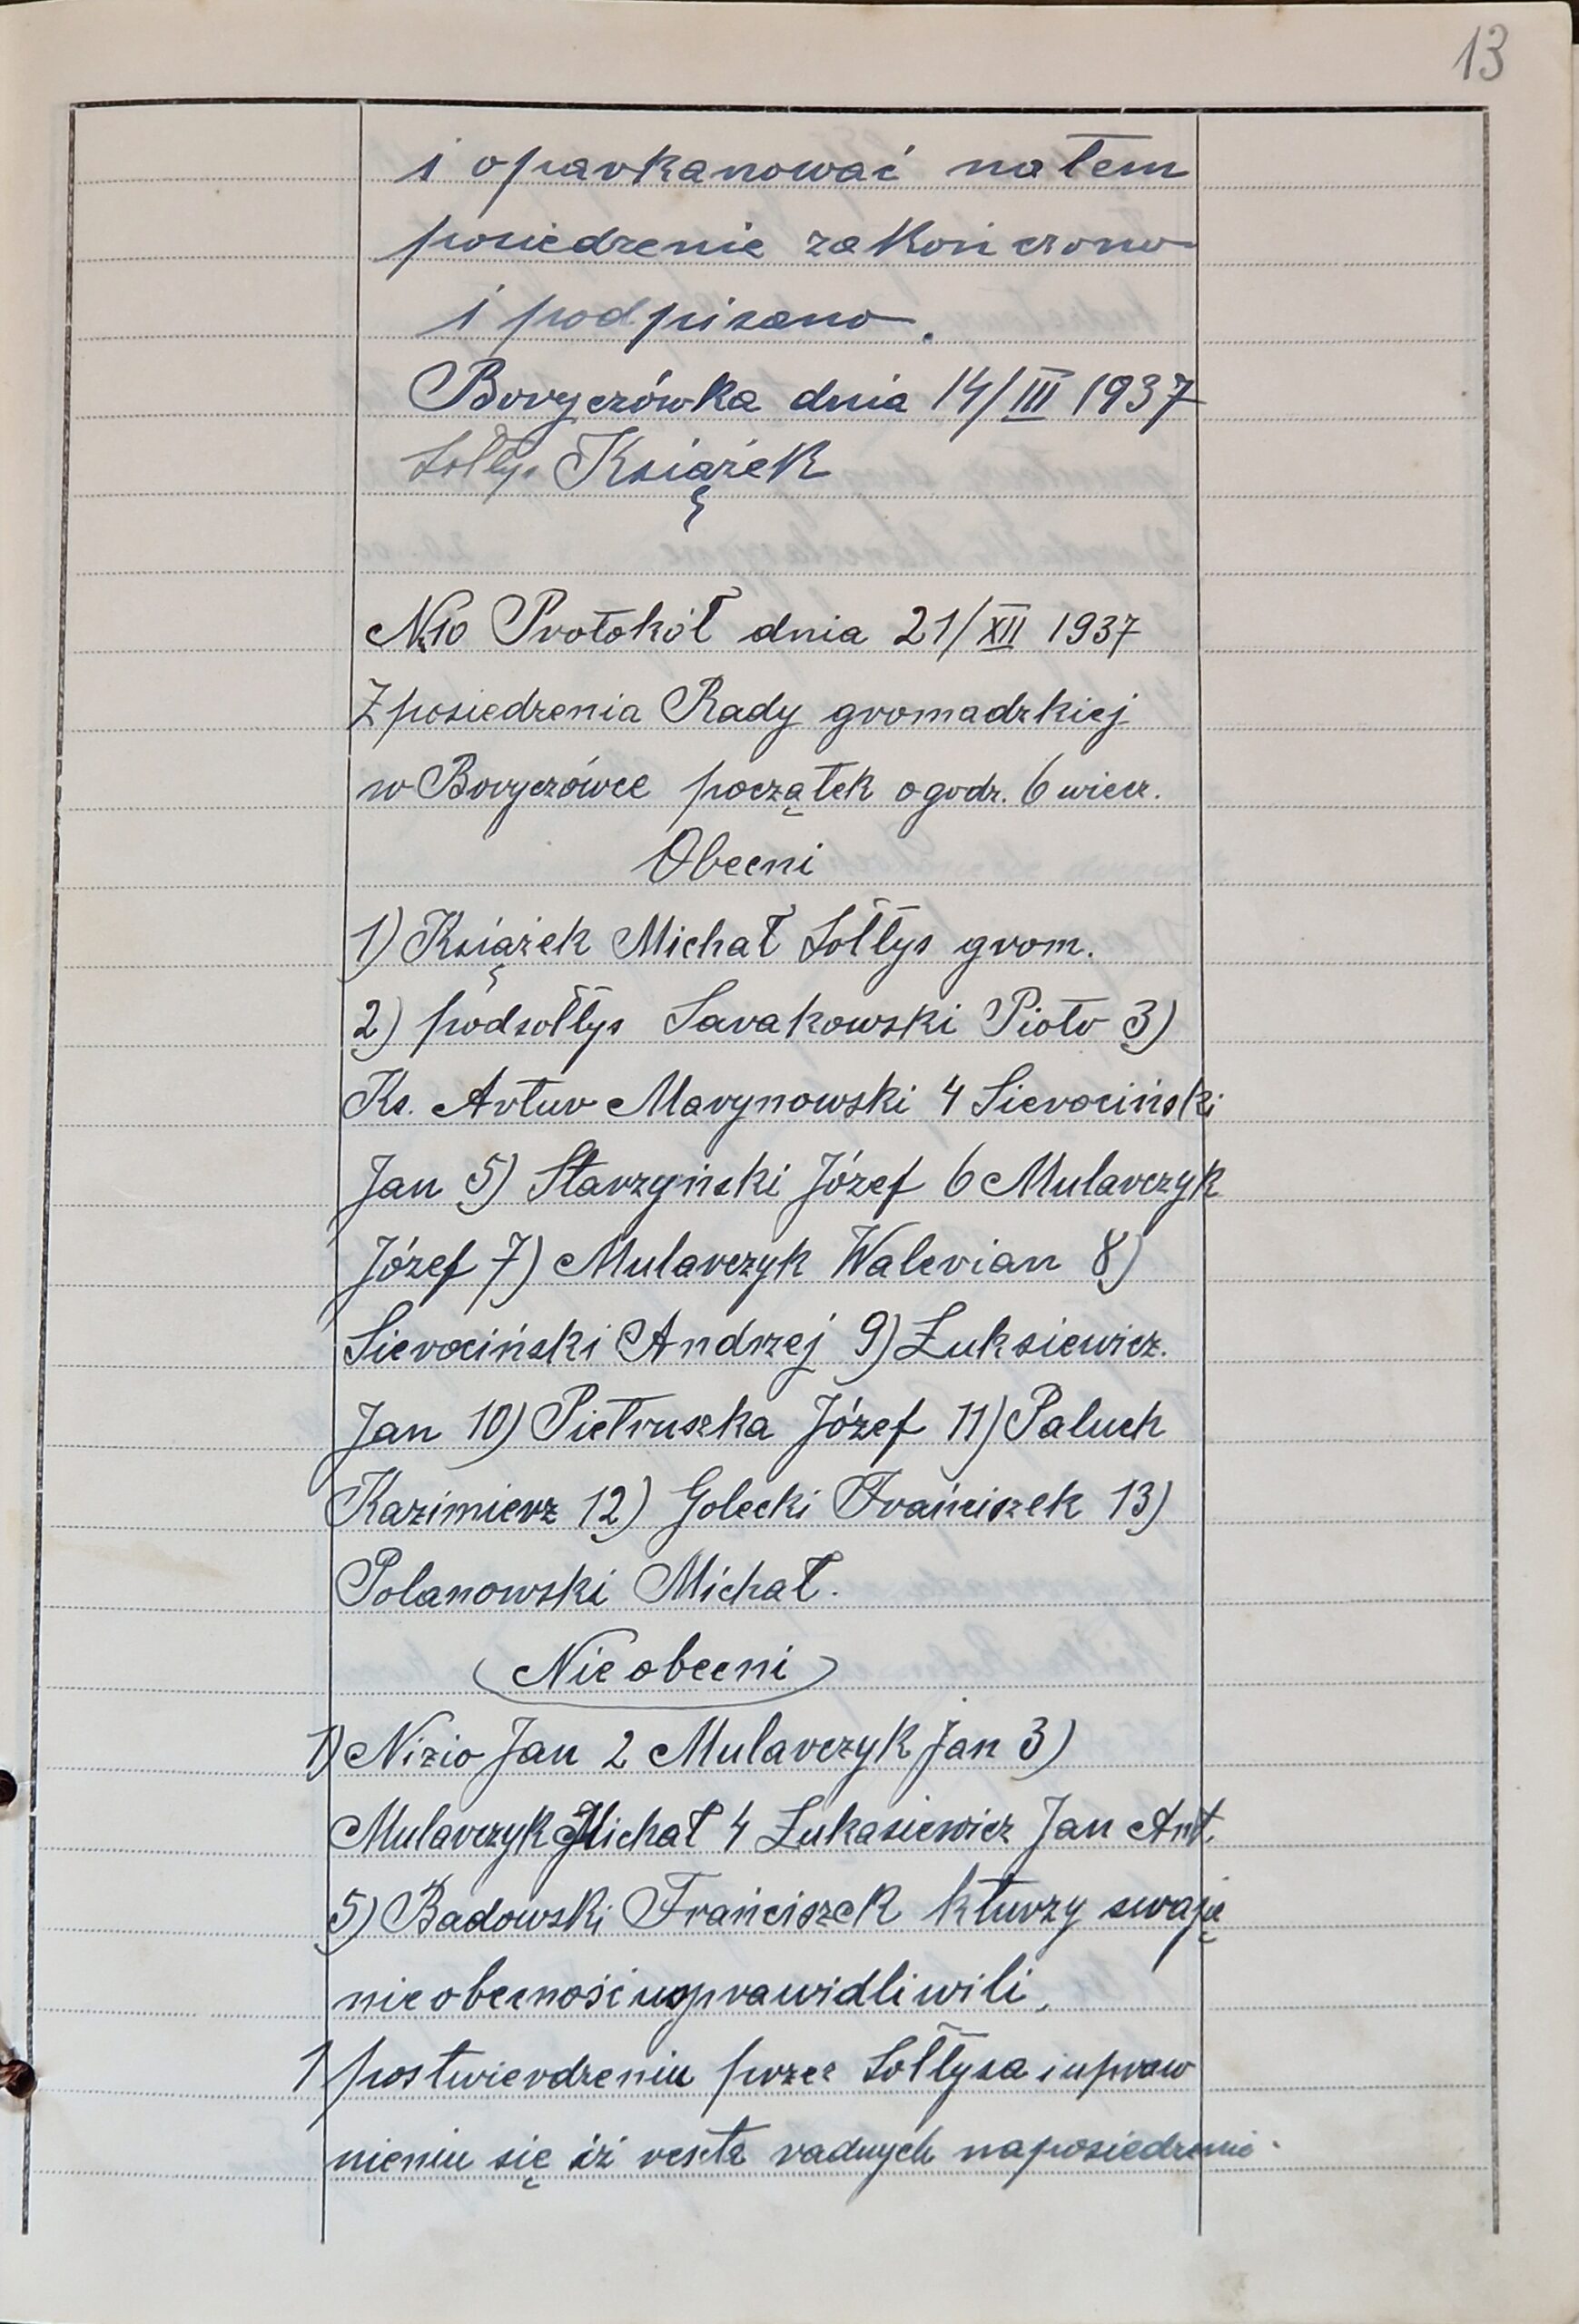 13
i oparkanować natem
posiedzenie zakończono
i podpisano.
Boryczówka dnia 14/III 1937
Sołtys Książek
№10 Protokół dnia 21/XII 1937
Z posiedzenia Rady gromadzkiej
w Boryczówce początek o godz. 6 wiecz.
Obecni
1) Książek Michał Sołtys grom.
2) podsołtys Sarakowski Piotr 3)
Ks. Artur Marynowski 4 Sierociński
Jan 5) Starzyński Józef 6 Mularczyk
Józef 7) Mularczyk Walerian 8)
Sierociński Andrzej 9) Łuksiewicz.
Jan 10) Pietruszka Józef 11) Paluch
Kazimierz 12) Golecki Frańciszek 13)
Polanowski Michał.
Nieobecni
1) Nizio Jan 2 Mularczyk Jan 3)
Mularczyk Michał 4 Łukasiewicz Jan Ant.
5) Badowski Frańciszek kturzy swają
nieobecność usprawidliwili,
1 postwierdzeniu przez Sołtysa i upraw
nieniu się iż reszta radnych naposiedzenie